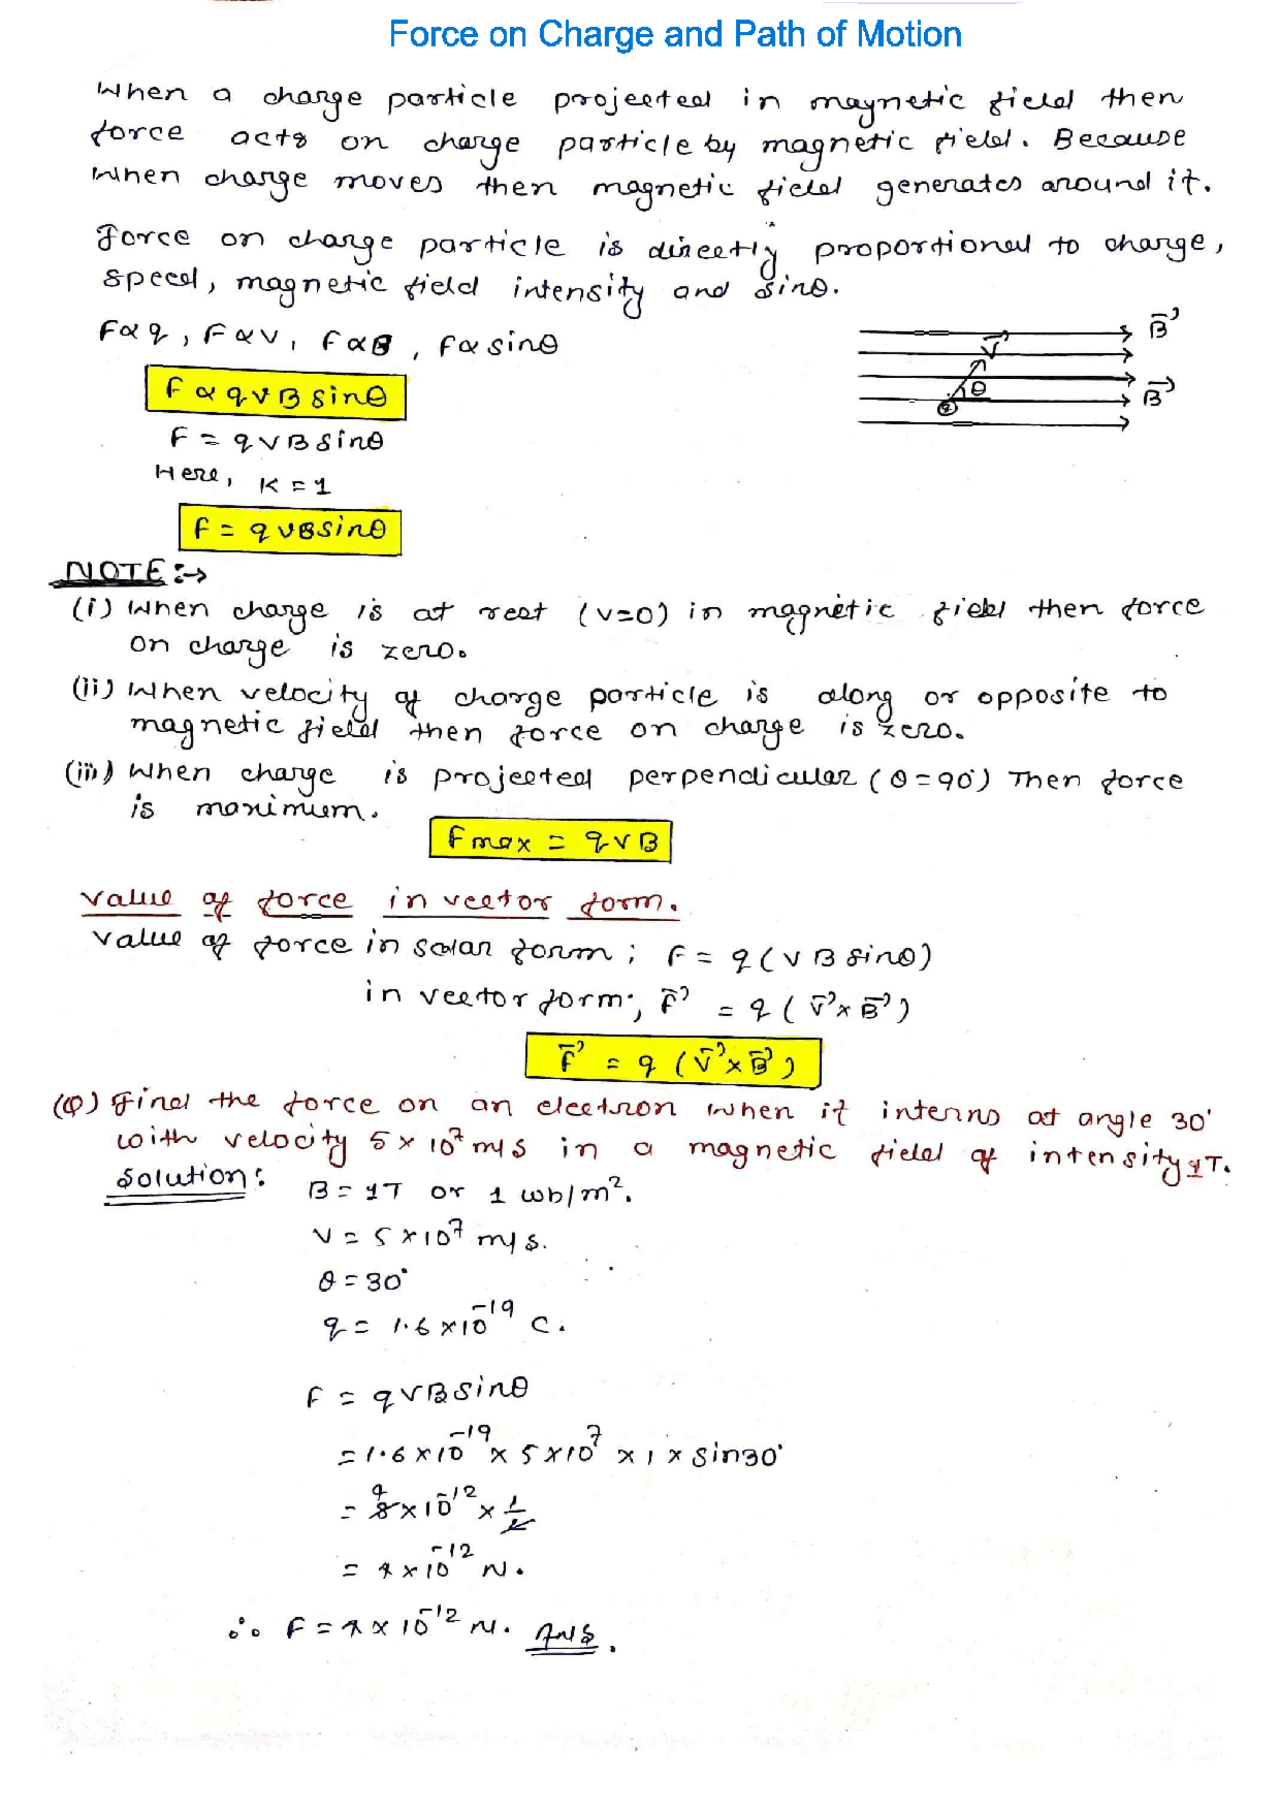 Force on Charge and Path of Motion
When a charge particle projected in magnetic field then
force acts on charge particle by magnetic field. Because
when charge moves then magnetic field generates around it.
Force on charge particle is directly proportional to charge,
speed, magnetic field intensity and sinθ.
F∝q, F∝v, F∝B, F∝sinθ
B⃗
v⃗
θ
q
B⃗
F ∝ qvBsinθ
F = qvBsinθ
Here, K = 1
F = qvBsinθ
NOTE:→
(i) When charge is at rest (v=0) in magnetic field then force
on charge is zero.
(ii) When velocity of charge particle is along or opposite to
magnetic field then force on charge is zero.
(iii) When charge is projected perpendicular (θ=90°) Then force
is maximum.
Fmax = qvB
Value of force in vector form.
Value of force in scalar form; F = q(vBsinθ)
in vector form; F⃗ = q(v⃗×B⃗)
F⃗ = q(v⃗×B⃗)
(Q) Find the force on an electron when it interns at angle 30°
with velocity 5×10⁷ m/s in a magnetic field of intensity 1T.
Solution: B = 1T or 1 wb/m².
v = 5×10⁷ m/s.
θ = 30°
q = 1.6×10⁻¹⁹ C.
F = qvBsinθ
= 1.6×10⁻¹⁹ × 5×10⁷ × 1 × sin30°
4
= 8×10⁻¹² × 1/2
= 4×10⁻¹² N.
∴ F = 4×10⁻¹² N. Ans.